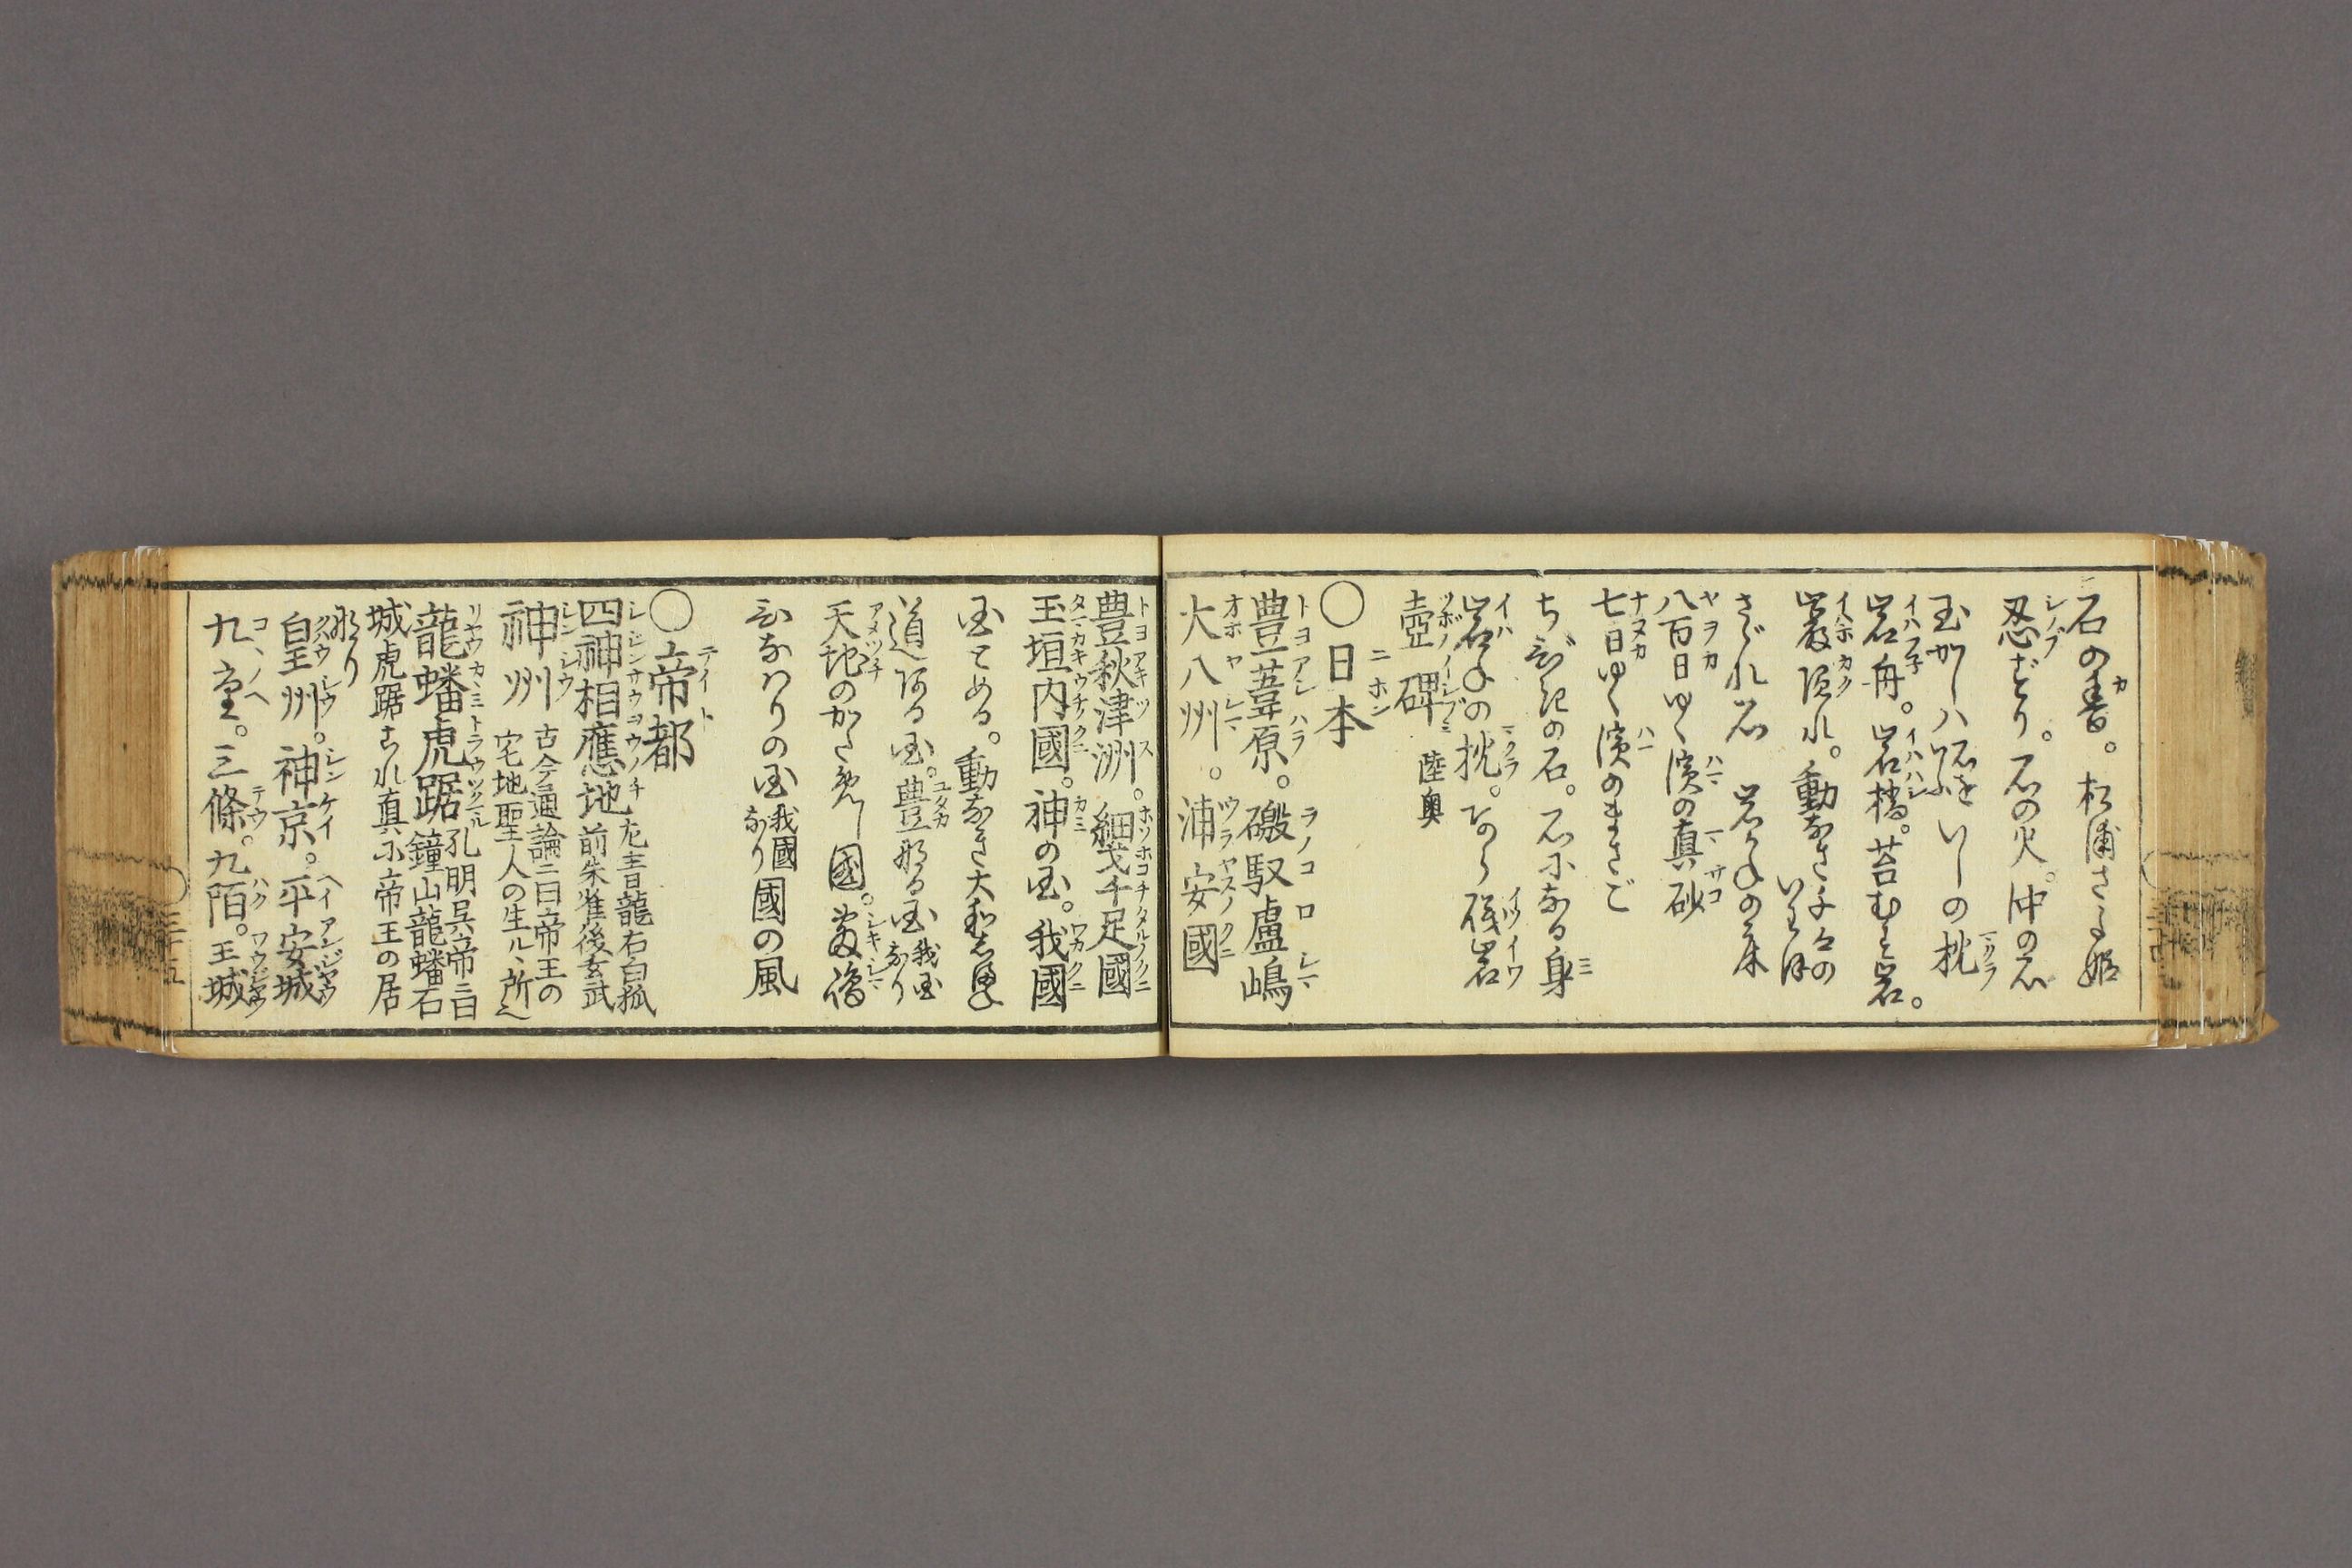 石の香。松浦さよ姫
忍ぶずり。石の火。沖の石
玉がしハ石をいふいしの枕
岩舟。岩橋。苔むす岩。
巌隠れ。動なき千々のいはほ
さゞれ石 岩がねの床
八百日ゆく濱の真砂
七日ゆく濱のまさご
ちびきの石。石になる身
岩ねの枕。さゞら硪岩
壺碑 陸奥
〇日本
豊葦原。磤馭盧嶋
大八洲。浦安國
豊秋津洲。細戈千足國
玉垣内國。神の国。我國
国とめる。動なき大和しまね
道ある国。豊なる国我国なり
天地のかため國。敷嶋
ことなハりの国我國なり國の風
〇帝都
四神相應地 左青龍右白狐前朱雀後玄武
神州 古今通論ニ曰帝王の宅地聖人の生ル、所ヘ
龍蟠虎踞 孔明呉帝ニ曰鐘山龍蟠石
城虎踞これ真に帝王の居
なり
皇州。神京。平安城
九重。三條。九陌。王城
三十五